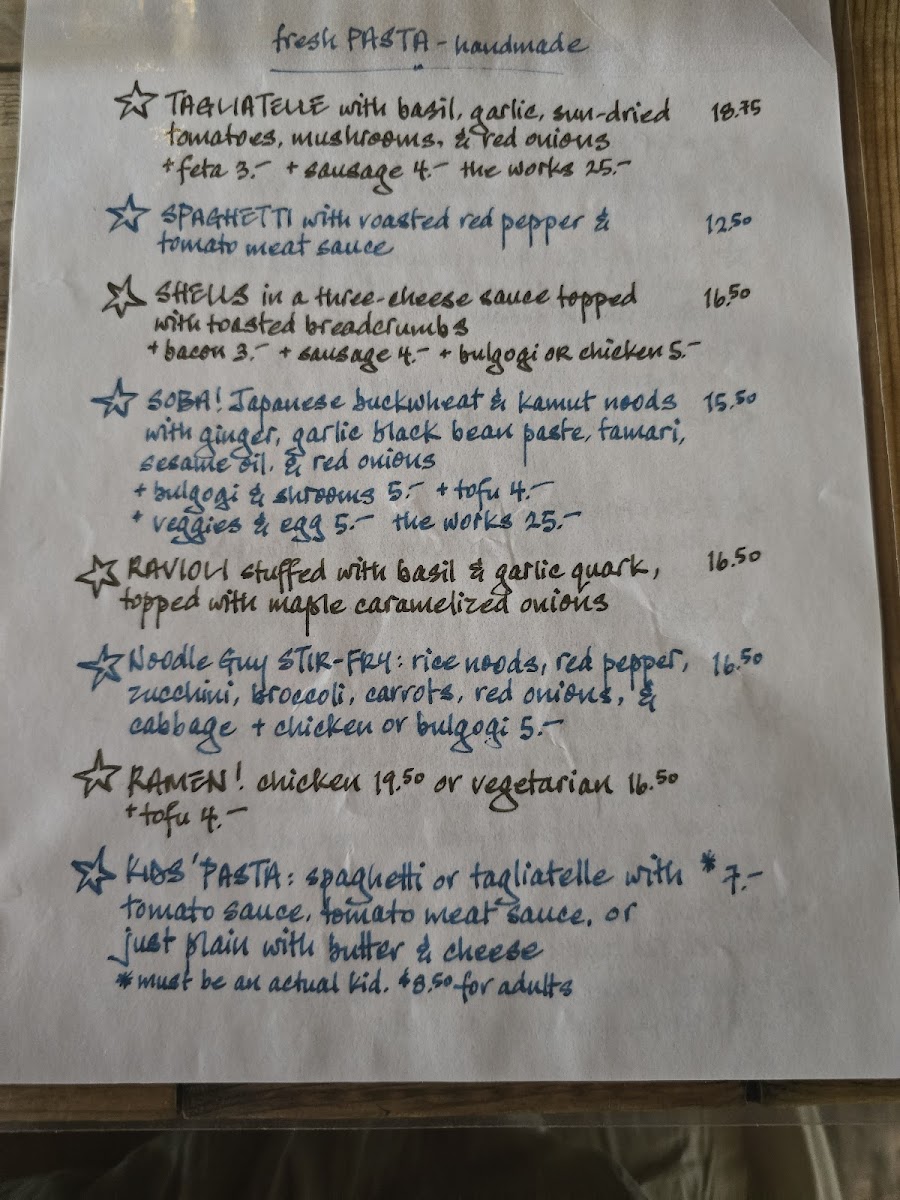 fresh PASTA - handmade
☆ TAGLIATELLE with basil, garlic, sun-dried 18.75
tomatoes, mushrooms, & red onions
+ feta 3.- + sausage 4.- the works 25.-
☆ SPAGHETTI with roasted red pepper & 12.50
tomato meat sauce
☆ SHELLS in a three-cheese sauce topped 16.50
with toasted breadcrumbs
+ bacon 3.- + sausage 4.- + bulgogi OR chicken 5.-
☆ SOBA! Japanese buckwheat & kamut noods 15.50
with ginger, garlic black bean paste, tamari,
sesame oil, & red onions
+ bulgogi & shrooms 5.- + tofu 4.-
+ veggies & egg 5.- the works 25.-
☆ RAVIOLI stuffed with basil & garlic quark, 16.50
topped with maple caramelized onions
☆ Noodle Guy STIR-FRY: rice noods, red pepper, 16.50
zucchini, broccoli, carrots, red onions, &
cabbage + chicken or bulgogi 5.-
☆ RAMEN! chicken 19.50 or vegetarian 16.50
+ tofu 4.-
☆ KIDS' PASTA: spaghetti or tagliatelle with * 7.-
tomato sauce, tomato meat sauce, or
just plain with butter & cheese
* must be an actual kid. $8.50 for adults